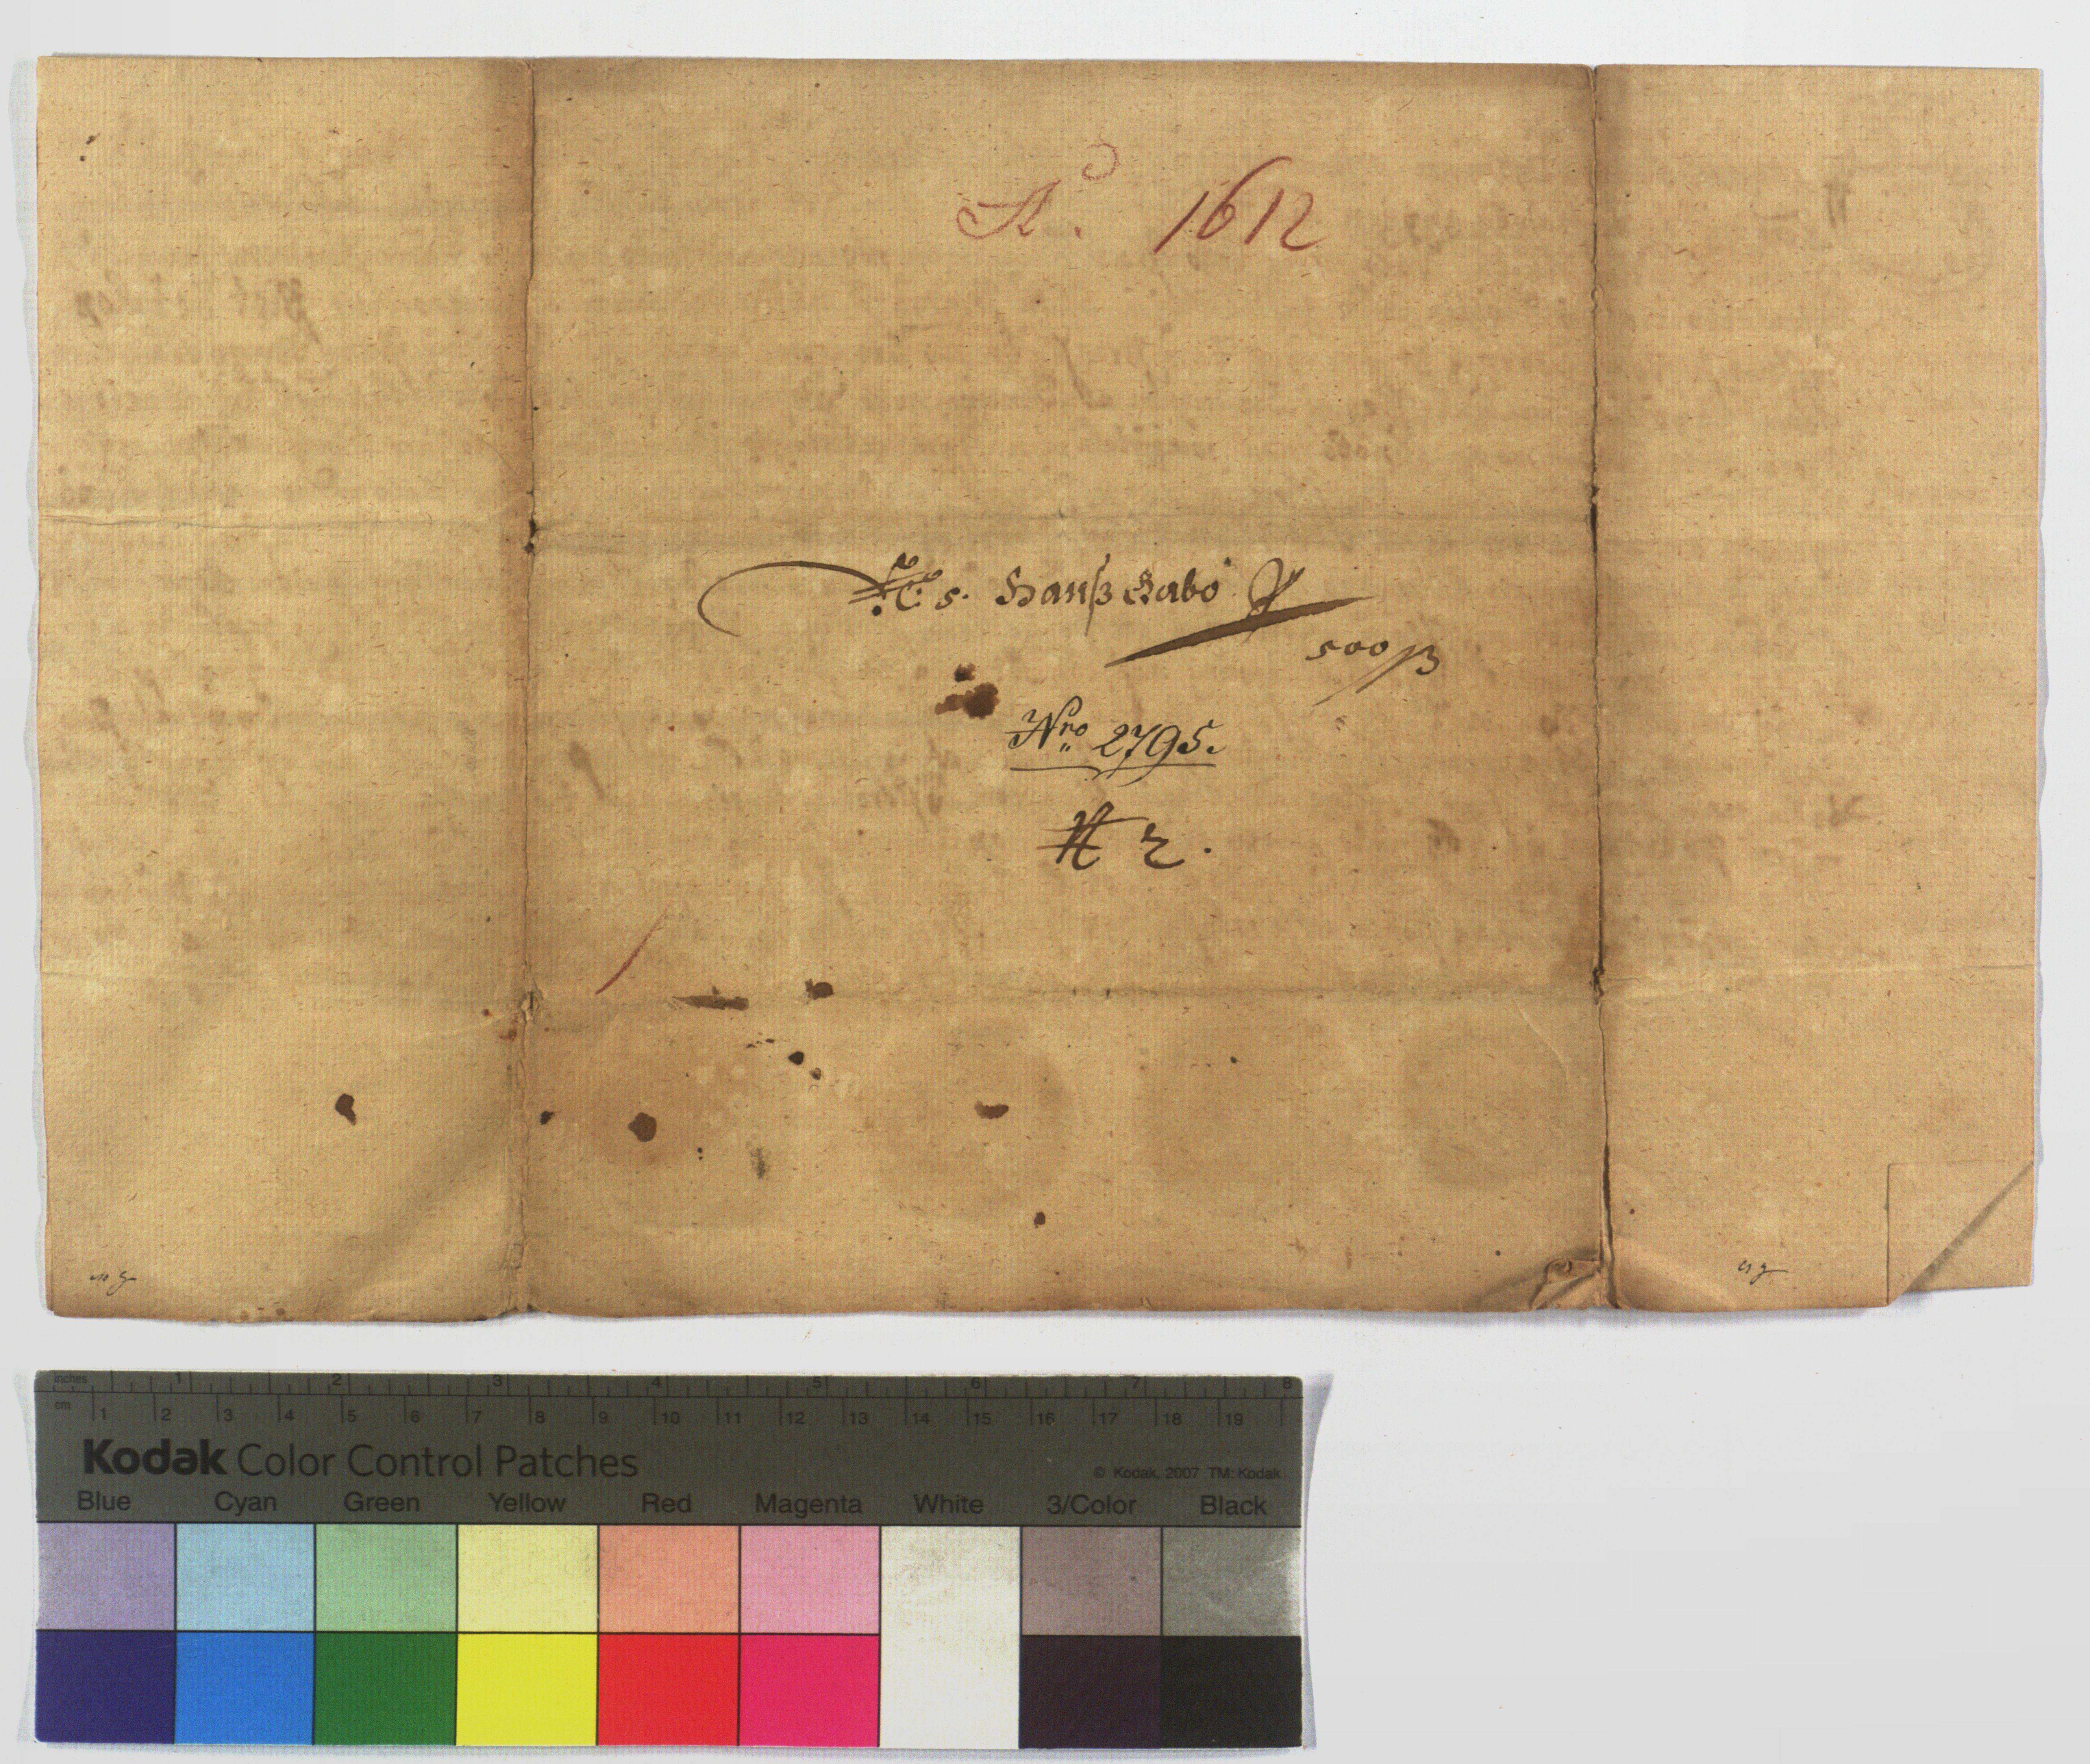 Aº. 1612
s. Hanß Szabo
500 ß
Nro 2795.
2.
inches 1 2 3 4 5 6 7 8
cm 1 2 3 4 5 6 7 8 9 10 11 12 13 14 15 16 17 18 19
Kodak Color Control Patches
© Kodak, 2007 TM: Kodak
Blue Cyan Green Yellow Red Magenta White 3/Color Black